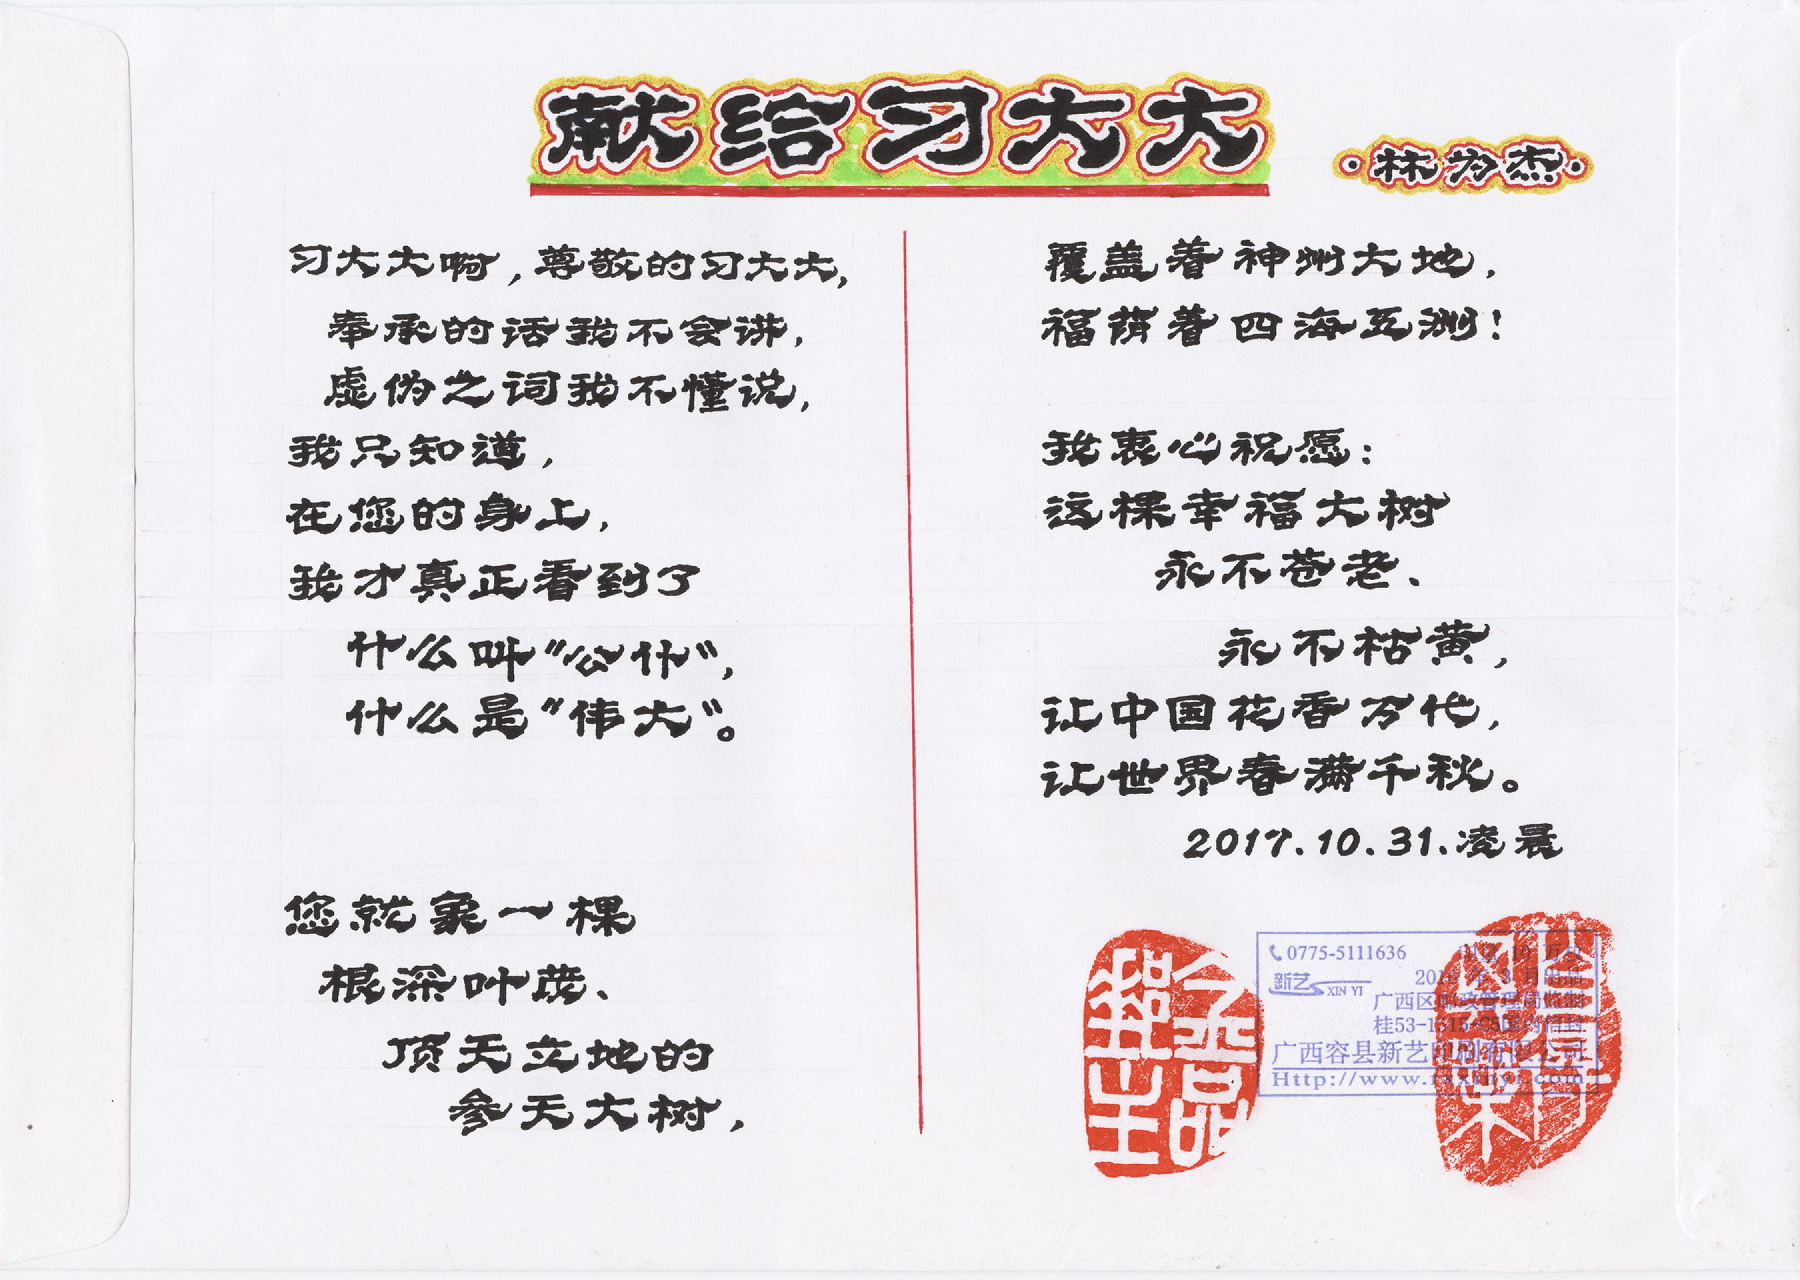 献给习大大
·林为杰·
习大大啊,尊敬的习大大,
奉承的话我不会讲,
虚伪之词我不懂说,
我只知道,
在您的身上,
我才真正看到了
什么叫“公仆”,
什么是“伟大”。
您就象一棵
根深叶茂、
顶天立地的
参天大树,
覆盖着神州大地,
福荫着四海五洲!
我衷心祝愿:
这棵幸福大树
永不苍老、
永不枯黄,
让中国花香万代,
让世界春满千秋。
2017.10.31.凌晨
0775-5111636
新艺 XIN YI
广西区邮政管理局监制
广西容县新艺印刷有限公司